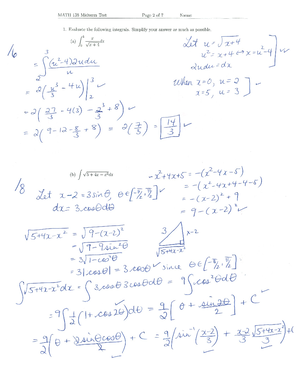 MATH 138 Midterm Test Page 2 of 7 Name:
1. Evaluate the following integrals. Simplify your answer as much as possible.
(a) ∫₀⁵ x/√(x+4) dx
Let u = √(x+4)
u² = x+4 → x = u²-4
2udu = dx
When x=0, u=2
x=5, u=3
/6
= ∫₂³ (u²-4)2udu / u
= 2(u³/3 - 4u)|₂³
= 2(27/3 - 4(3) - 2³/3 + 8)
= 2(9-12-8/3+8) = 2(7/3) = 14/3
(b) ∫√(5+4x-x²) dx
-x²+4x+5 = -(x²-4x-5)
= -(x²-4x+4-4-5)
= -(x-2)²+9
= 9-(x-2)²
/8
Let x-2 = 3sinθ, θ∈[-π/2, π/2]
dx = 3cosθdθ
√(5+4x-x²) = √(9-(x-2)²)
= √(9-9sin²θ)
3 x-2
√(5+4x-x²)
= 3|cosθ| = 3cosθ since θ∈[-π/2, π/2]
∫√(5+4x-x²)dx = ∫3cosθ3cosθdθ = 9∫cos²θdθ
= 9∫½(1+cos2θ)dθ = 9/2[θ + sin2θ/2] + C
= 9/2(θ + 2sinθcosθ/2) + C = 9/2(sin⁻¹(x-2/3) + x-2/3 √(5+4x-x²)/3) + C